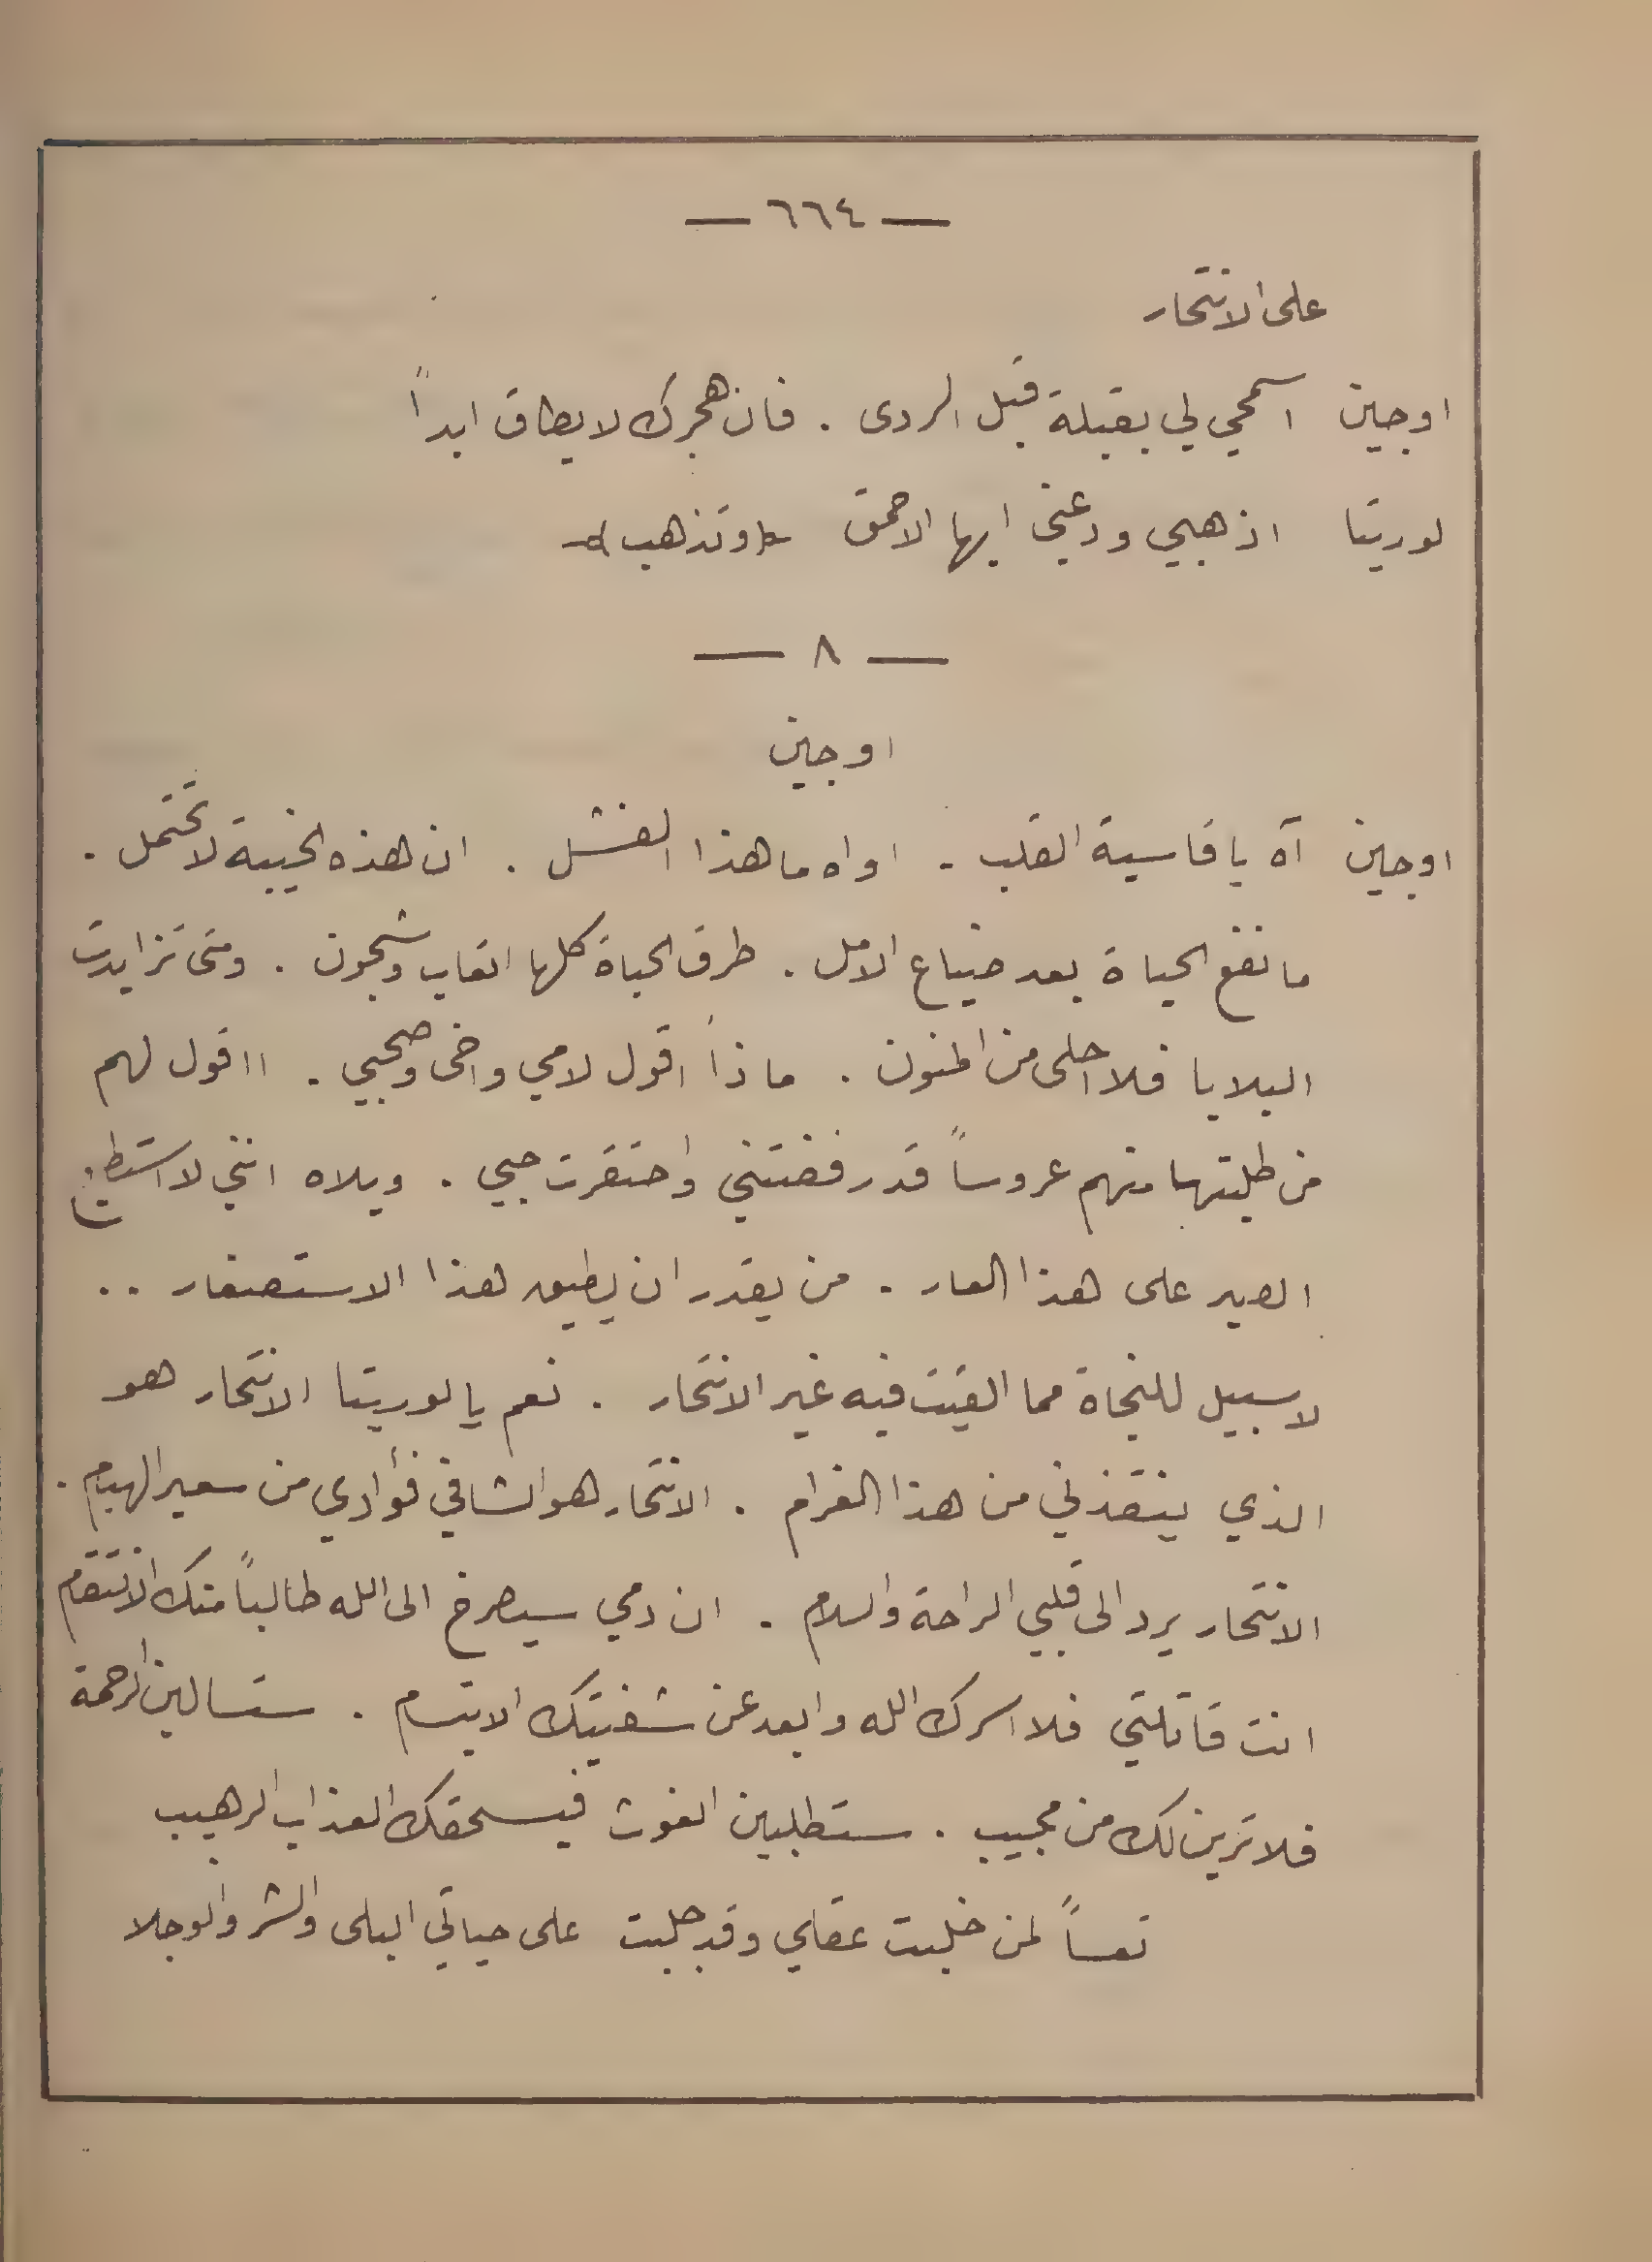 — ٦٦٤ —
على الانتحار
اوجين اسمحي لي بقبلة قبل الردى . فان هجرك لا يطاق ابداً
لوريتا اذهبي ودعني ايها الاحمق (وتذهب)
— ٨ —
اوجين
اوجين آه يا قاسية القلب . اواه ما هذا الفشل . ان هذه الخيبة لا تحتمل .
ما نفع الحياة بعد ضياع الامل . طرق الحياة كلها اتعاب وشجون . ومتى تزايدت
البلايا فلا احلى من المنون . ماذا اقول لامي واخي وصحبي . ااقول لهم
من طلبتها منهم عروساً قد رفضتني واحتقرت حبي . ويلاه انني لا استطيع
الصبر على هذا العار . من يقدر ان يطيق هذا الاستصغار ..
لا سبيل للنجاة مما القيت فيه غير الانتحار . نعم يا لوريتا الانتحار هو
الذي ينقذني من هذا الغرام . الانتحار هو الشافي فؤادي من سعير الهيام .
الانتحار يرد الى قلبي الراحة والسلام . ان دمي سيصرخ الى الله طالباً منك الانتقام
انت قاتلتي فلا اسرك الله وابعد عن شفتيك الابتسام . ستسالين الرحمة
فلا ترين لك من مجيب . ستطلبين الغوث فيسحقك العذاب الرهيب
تعساً لمن خلبت عقلي وقد جلبت على حياتي البلى والشر والوجلا